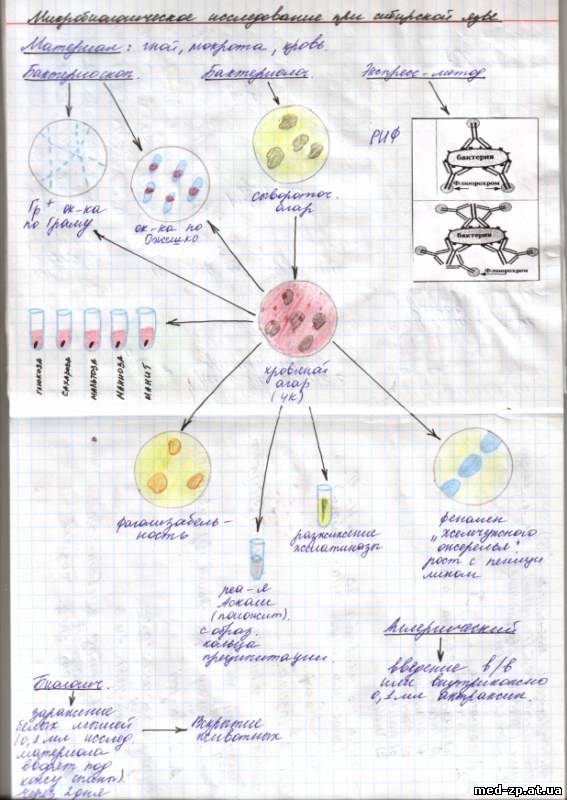 Микробиологическое исследование при сибирской язве
Материал: гной, мокрота, кровь.
Бактериоскоп.
Бактериолог.
Экспресс-метод
РИФ
бактерия
Флюорохром
бактерия
Флюорохром
Гр+ ок-ка
по Граму
ок-ка по
Ожешко
сывороточ.
агар
глюкоза
сахароза
мальтоза
манноза
манит
кровяной
агар
(ЧК)
фаголизабель-
ность
разжижение
желатиназы
феномен
„жемчужного
ожерелья".
рост с пеници
лином
реа-я
Асколи
(положит).
с образ.
кольца
преципитации.
Аллергический
введение в/в
или внутрикожно
0,1 мл антраксин.
Биологич.
заражение
белых мышей
(0,2 мл исслед.
материала
вводят под
кожу спины)
через 2 дня
Вскрытие
животных
med-zp.at.ua